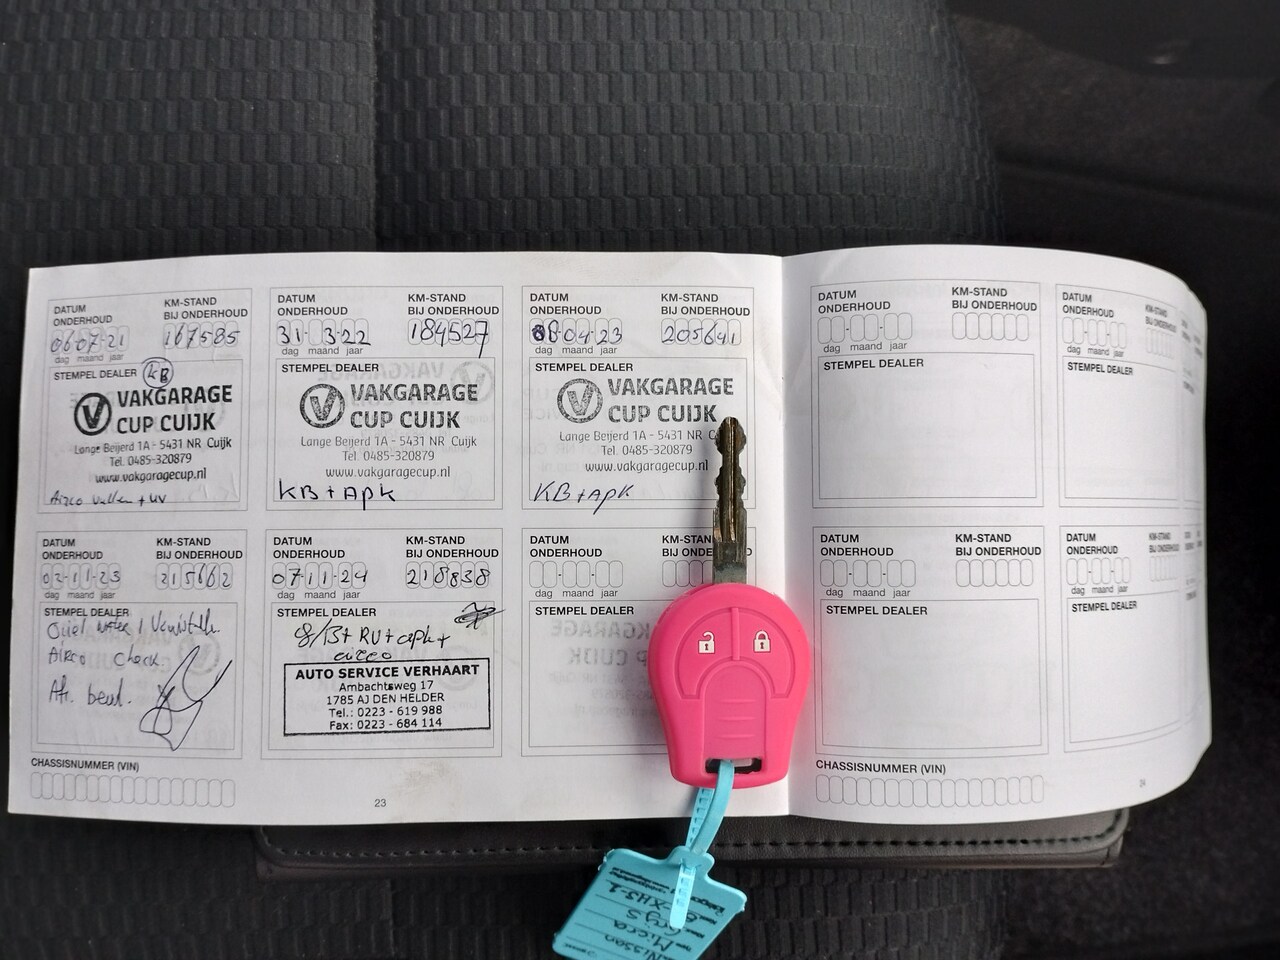 DATUM ONDERHOUD
KM-STAND BIJ ONDERHOUD
06-07-21
167585
dag maand jaar
STEMPEL DEALER KB
VAKGARAGE
CUP CUIJK
Lange Beijerd 1A - 5431 NR Cuijk
Tel. 0485-320879
www.vakgaragecup.nl
Airco vullen + UV
DATUM ONDERHOUD
KM-STAND BIJ ONDERHOUD
31-3-22
184527
dag maand jaar
STEMPEL DEALER
VAKGARAGE
CUP CUIJK
Lange Beijerd 1A - 5431 NR Cuijk
Tel. 0485-320879
www.vakgaragecup.nl
KB + Apk
DATUM ONDERHOUD
KM-STAND BIJ ONDERHOUD
08-04-23
205641
dag maand jaar
STEMPEL DEALER
VAKGARAGE
CUP CUIJK
Lange Beijerd 1A - 5431 NR
Tel. 0485-320879
www.vakgaragecup.nl
KB + Apk
DATUM ONDERHOUD
KM-STAND BIJ ONDERHOUD
02-11-23
215662
dag maand jaar
STEMPEL DEALER
Airco check
DATUM ONDERHOUD
KM-STAND BIJ ONDERHOUD
07-11-24
218838
dag maand jaar
STEMPEL DEALER
RV + apk +
airco
AUTO SERVICE VERHAART
Ambachtsweg 17
1785 AJ DEN HELDER
Tel.: 0223 - 619 988
Fax: 0223 - 684 114
DATUM ONDERHOUD
KM-S
BIJ
dag maand jaar
STEMPEL DEALER
CHASSISNUMMER (VIN)
23
DATUM ONDERHOUD
KM-STAND BIJ ONDERHOUD
dag maand jaar
STEMPEL DEALER
DATUM ONDERHOUD
KM-STAND BIJ ONDERHOUD
dag maand jaar
STEMPEL DEALER
DATUM ONDERHOUD
KM-STAND BIJ ONDERHOUD
dag maand jaar
STEMPEL DEALER
DATUM ONDERHOUD
KM-STAND BIJ ONDERHOUD
dag maand jaar
STEMPEL DEALER
CHASSISNUMMER (VIN)
24
Nissan
Micra
Grijs